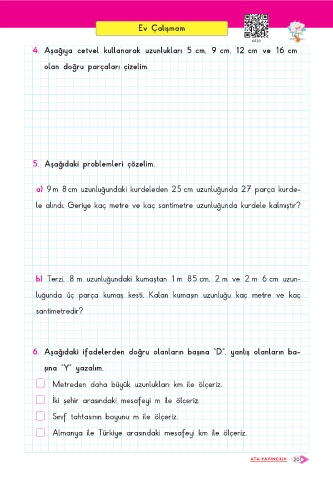 Ev Çalışmam
4. Aşağıya cetvel kullanarak uzunlukları 5 cm, 9 cm, 12 cm ve 16 cm
olan doğru parçaları çizelim.
5. Aşağıdaki problemleri çözelim.
a) 9 m 8 cm uzunluğundaki kurdeleden 25 cm uzunluğunda 27 parça kurde-
le alındı. Geriye kaç metre ve kaç santimetre uzunluğunda kurdele kalmıştır?
b) Terzi, 8 m uzunluğundaki kumaştan 1 m 85 cm, 2 m ve 2 m 6 cm uzun-
luğunda üç parça kumaş kesti. Kalan kumaşın uzunluğu kaç metre ve kaç
santimetredir?
6. Aşağıdaki ifadelerden doğru olanların başına "D", yanlış olanların ba-
şına "Y" yazalım.
Metreden daha büyük uzunlukları km ile ölçeriz.
İki şehir arasındaki mesafeyi m ile ölçeriz.
Sınıf tahtasının boyunu m ile ölçeriz.
Almanya ile Türkiye arasındaki mesafeyi km ile ölçeriz.
ATA YAYINCILIK